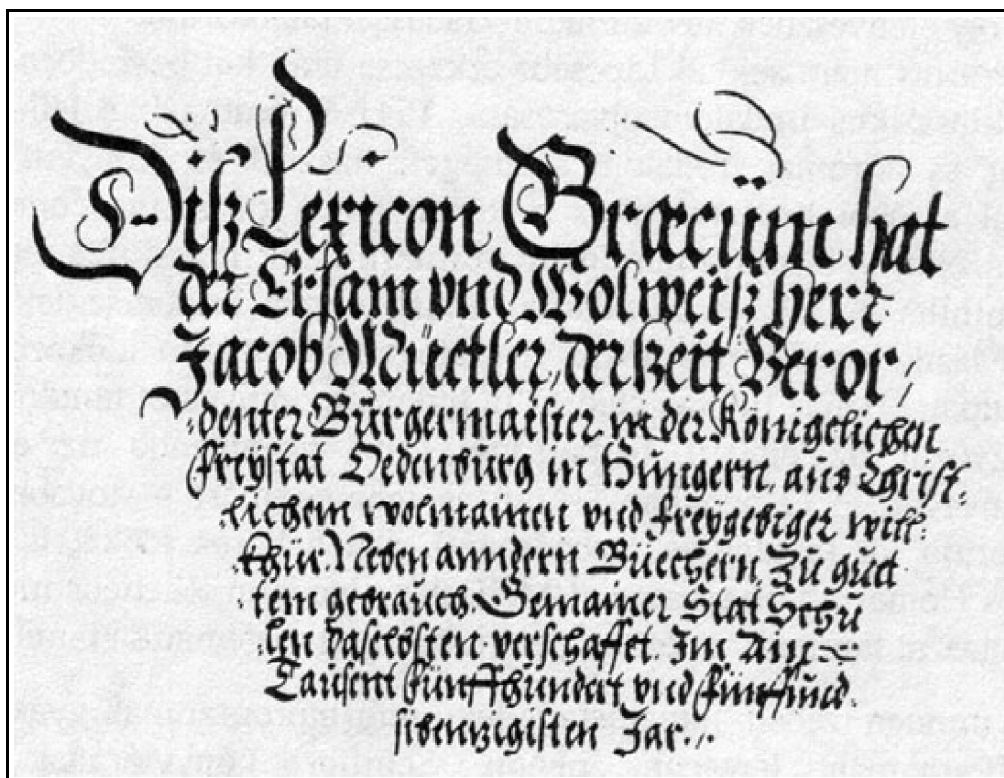 Diß Lexicon Græcüm hat
der Ersam vnd Wolweiß herr
Jacob Müetler, derzeit Veror/
denter Bürgermaister in der Königelichen
freÿstat Oedenbürg in Hüngern, aus Christ-
lichem wolmainen vnd freÿgebiger will-
khür. Neben anndern Büechern, Zu guet
tem gebrauch Gemainer Stat Schü
len daselbsten verschaffet. Im Ain
Tausent fünffhündert vnd fünffünd
sibenzigisten Jar.